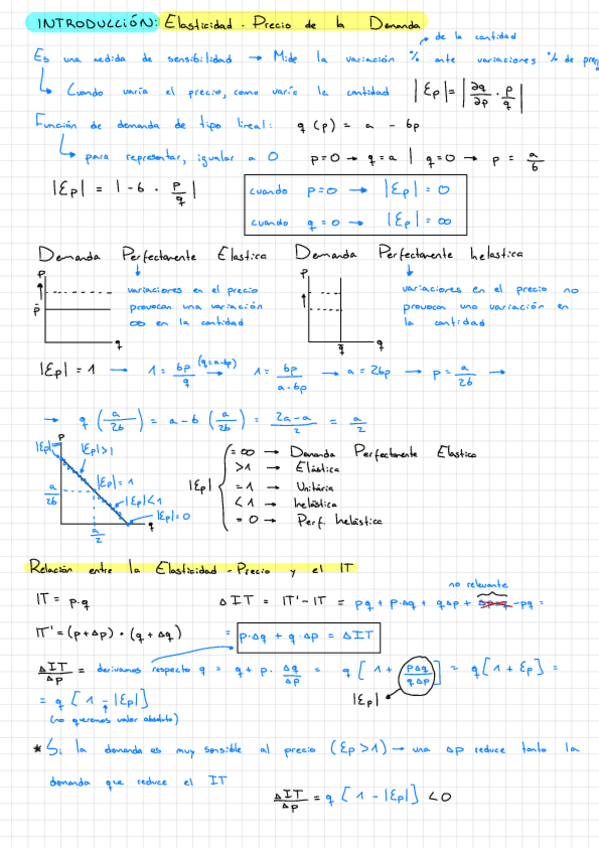 INTRODUCCIÓN: Elasticidad - Precio de la Demanda
de la cantidad
Es una medida de sensibilidad → Mide la variación % ante variaciones % de prec
↳ Cuando varía el precio, como varía la cantidad |Ep| = |∂q/∂p · p/q|
Función de demanda de tipo lineal: q(p) = a - bp
↳ para representar, igualar a 0 p=0 → q=a | q=0 → p = a/b
|Ep| = |-b · p/q|
cuando p=0 → |Ep| = 0
cuando q=0 → |Ep| = ∞
Demanda Perfectamente Elastica
Demanda Perfectamente Inelastica
p
p̄
q
variaciones en el precio
provocan una variación
∞ en la cantidad
p
q̄
q
variaciones en el precio no
provocan una variación en
la cantidad
|Ep| = 1 → 1 = bp/q (q=a-bp) → 1 = bp/a-bp → a = 2bp → p = a/2b →
→ q (a/2b) = a - b (a/2b) = 2a-a/2 = a/2
p
|Ep|
|Ep|>1
|Ep|=1
|Ep|<1
|Ep|=0
a/2b
a/2
q
|Ep|
= ∞ → Demanda Perfectamente Elastica
>1 → Elástica
=1 → Unitária
<1 → Inelástica
= 0 → Perf. Inelástica
Relación entre la Elasticidad - Precio y el IT
no relevante
IT = p·q
ΔIT = IT' - IT = pq + p·Δq + qΔp + Δp·Δq - pq =
IT' = (p+Δp) · (q+Δq)
= p·Δq + q·Δp = ΔIT
ΔIT/Δp = derivamos respecto q = q + p· Δq/Δp = q [1 + pΔq/qΔp] = q[1+Ep] =
= q [1 - |Ep|]
|Ep|
(no queremos valor absoluto)
* Si la demanda es muy sensible al precio (Ep>1) → una Δp reduce tanto la
demanda que reduce el IT
ΔIT/Δp = q [1 - |Ep|] < 0